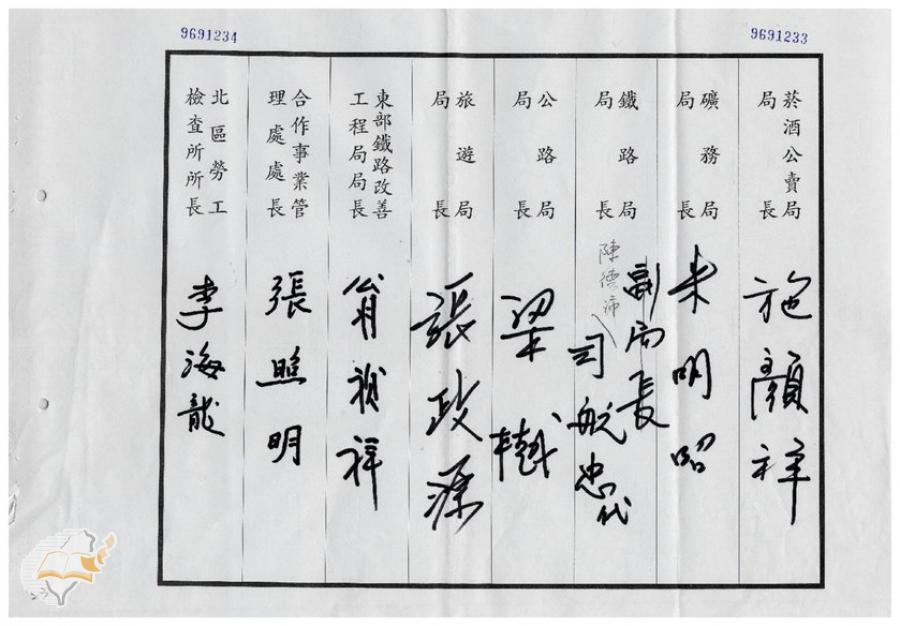 9691234
9691233
菸酒公賣局局長
施顏祥
礦務局局長
朱明昭
鐵路局局長
副局長
陳德沛
司航忠代
公路局局長
梁樾
旅遊局局長
張政源
東部鐵路改善工程局局長
翁禎祥
合作事業管理處處長
張照明
北區勞工檢查所所長
李海龍